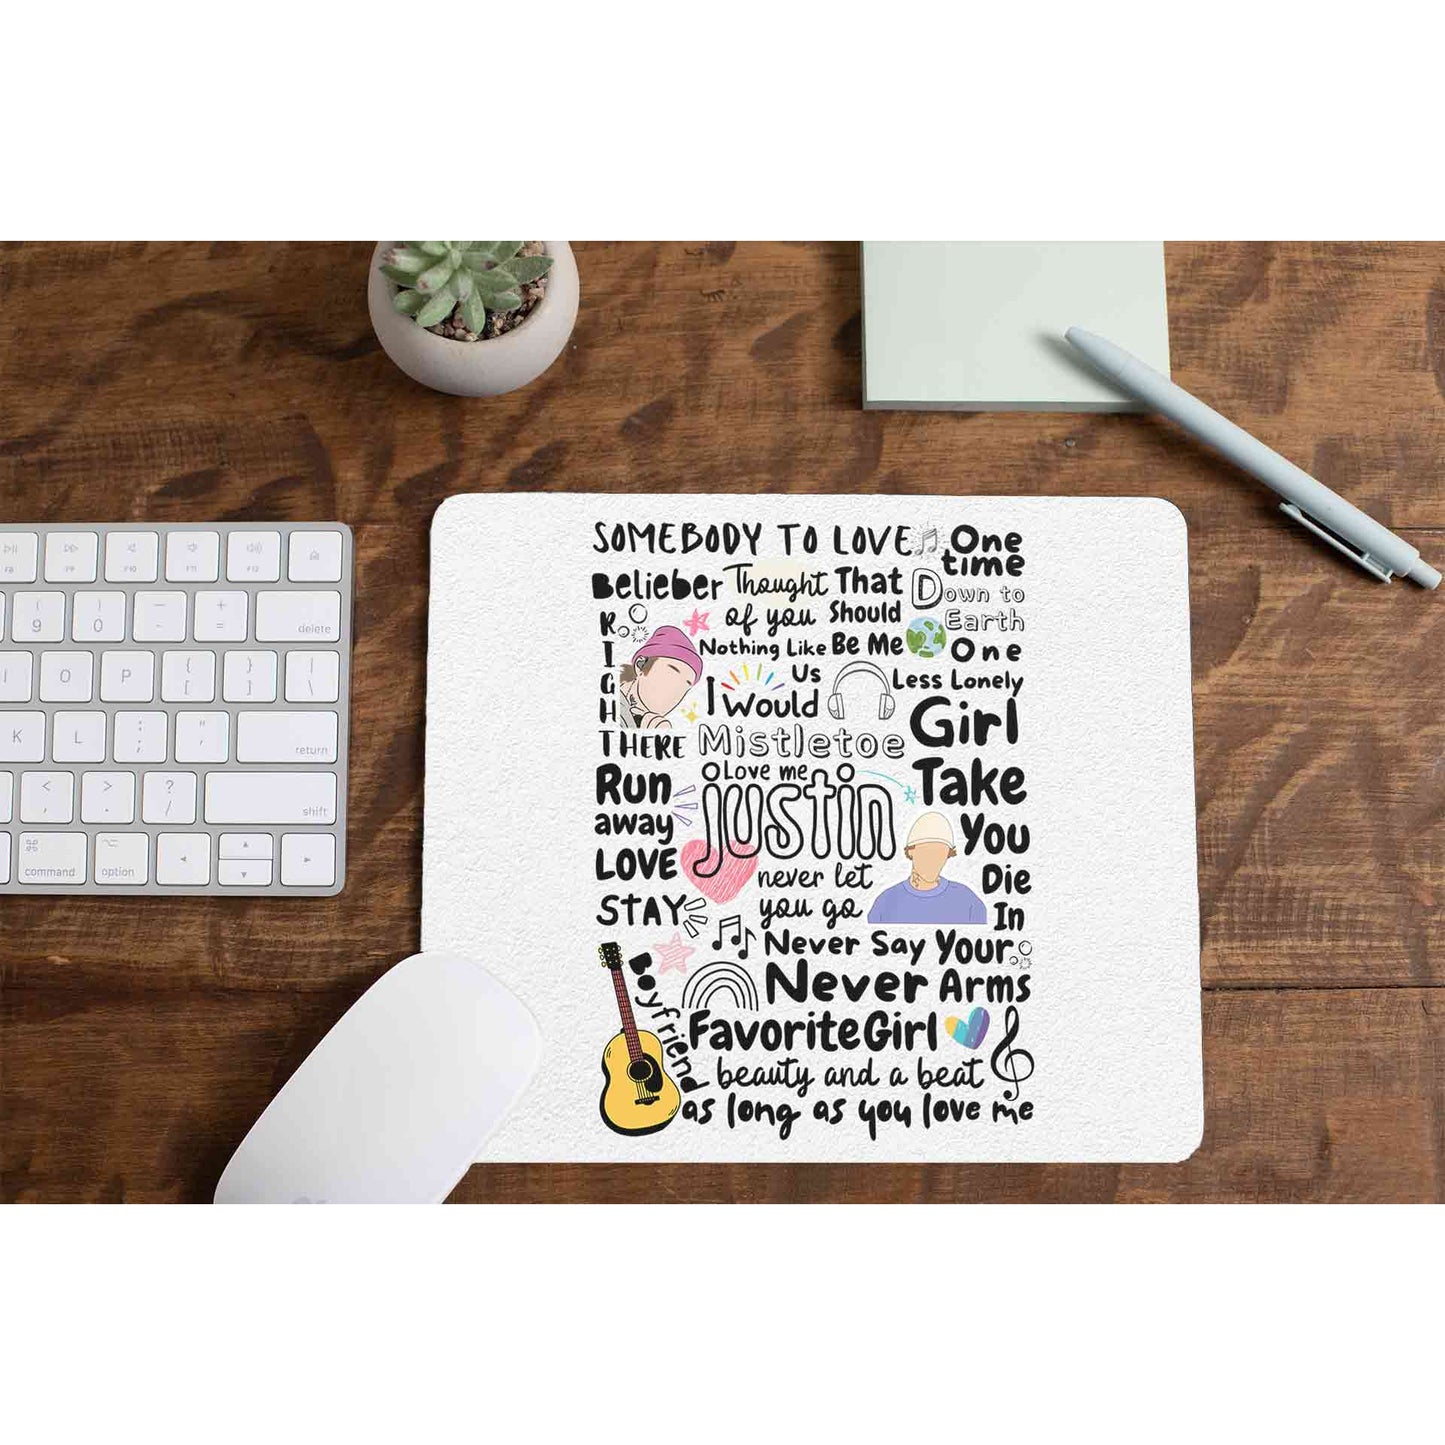 SOMEBODY TO LOVE
One
time
Belieber
Thought
of you
That
Should
Be Me
Down to
Earth
RIGHT
THERE
Nothing Like
Us
One
Less Lonely
Girl
I Would
Mistletoe
Love me
justin
Take
You
Die
In
Your
Arms
Run
away
LOVE
STAY
never let
you go
Never Say
Never
Boyfriend
Favorite Girl
beauty and a beat
as long as you love me
F8
F9
F10
F11
F12
( ) — +
9 0 - =
delete
I O P { }
[ ] \
K L : "
; '
return
< > ?
, . /
shift
command option